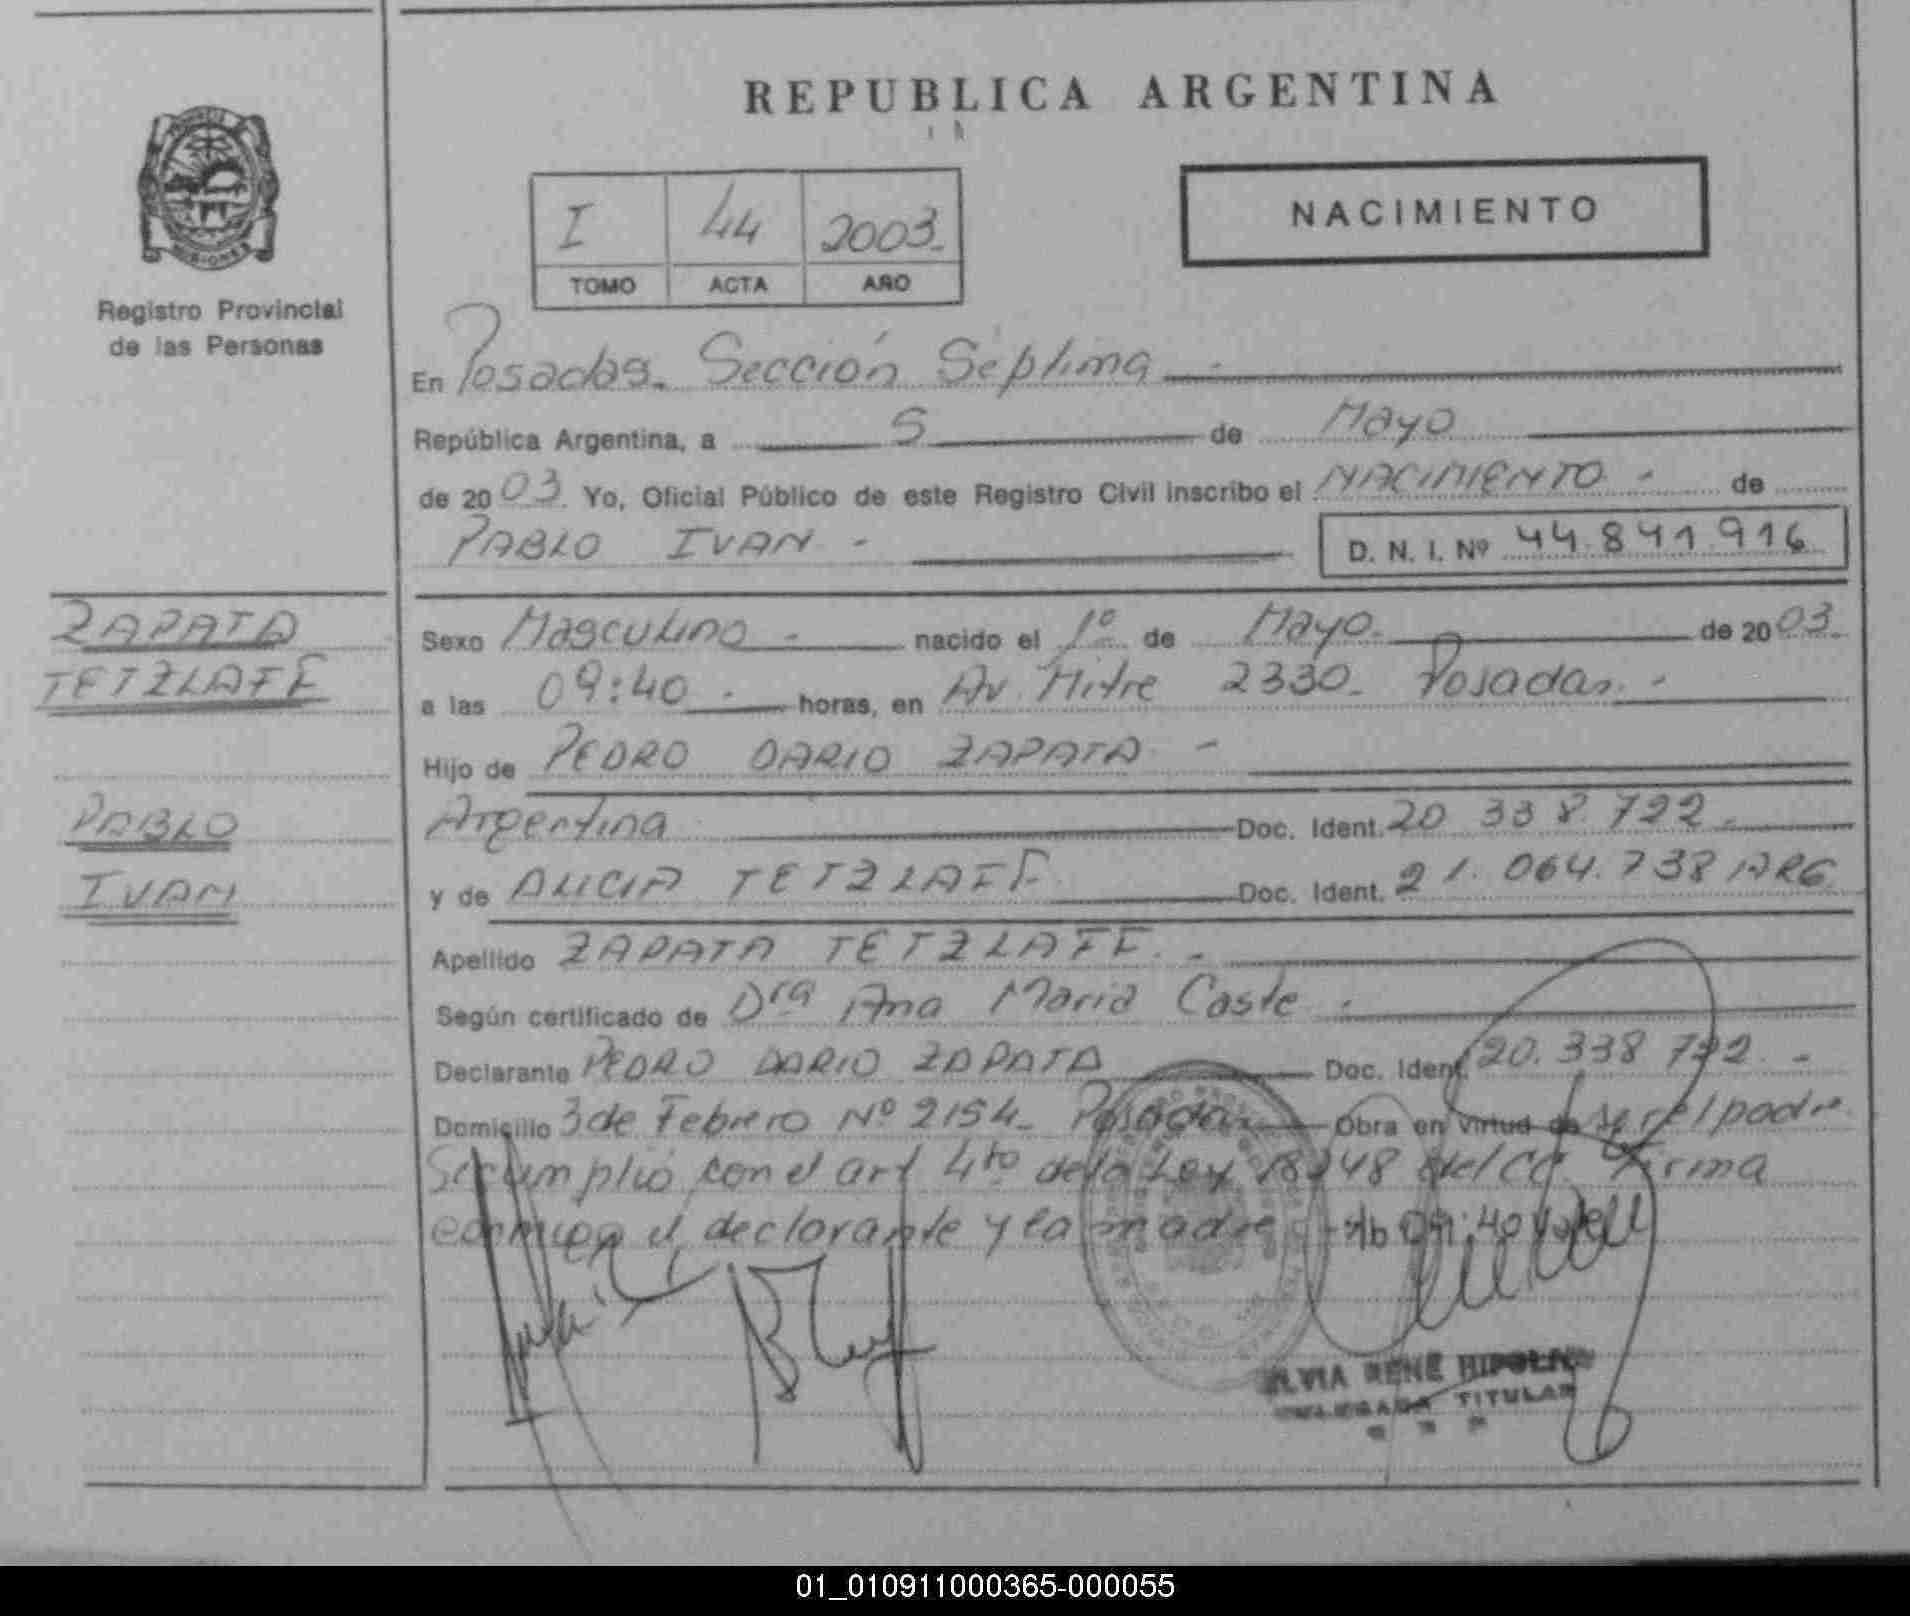 REPUBLICA ARGENTINA
NACIMIENTO
I 44 2003.
TOMO ACTA AÑO
MISIONES
Registro Provincial
de las Personas
En Posadas. Sección Séptima
República Argentina, a 5 de Mayo
de 2003. Yo, Oficial Público de este Registro Civil inscribo el NACIMIENTO - de
PABLO IVAN - D. N. I. Nº 44.841.916
ZAPATA
TETZLAFF
PABLO
IVAN
Sexo Masculino - nacido el 1º de Mayo. de 2003.
a las 09:40. horas, en Av. Mitre 2330. Posadas. -
Hijo de PEDRO DARIO ZAPATA -
Argentina Doc. Ident. 20 338 722.
y de ALICIA TETZLAFF Doc. Ident. 21.064.738 ARG
Apellido ZAPATA TETZLAFF. -
Según certificado de Dra Ana Maria Caste.
Declarante PEDRO DARIO ZAPATA Doc. Ident. 20.338 722. -
Domicilio 3 de Febrero Nº 2154. Posadas Obra en virtud de ser el padre
Se cumplió con el art 4to de la Ley 18248 del CC. Firma
conmigo el declarante y la madre 09:40
RENÉ
TITULAR
01_010911000365-000055